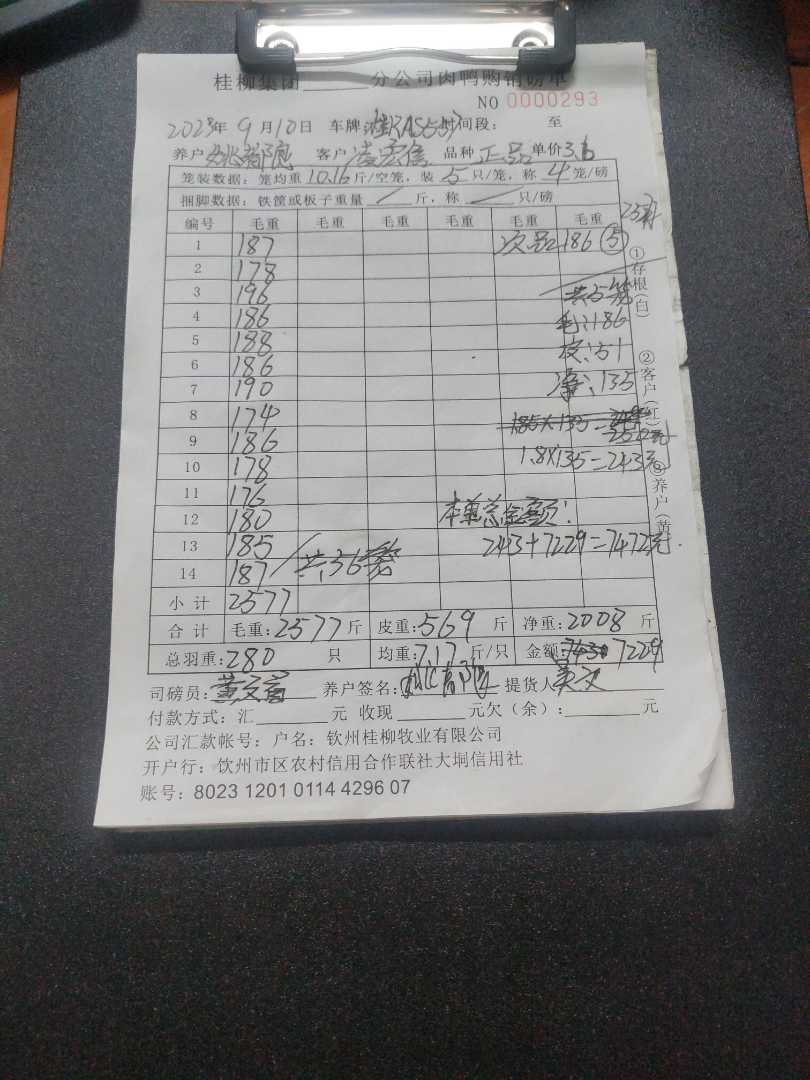 桂柳集团______分公司肉鸭购销磅单
NO 0000293
2023年9月10日 车牌 时间段: 至
养户 客户 凌宏信 品种 正品 单价3.6
笼装数据:笼均重10.16斤/空笼,装5只/笼,称4笼/磅
捆脚数据:铁筐或板子重量 / 斤,称 / 只/磅
编号 毛重 毛重 毛重 毛重 毛重 毛重
1 187 次品 186 ⑤
2 178
3 196 共5笼
4 186 毛:186
5 188 皮:51
6 186 净:135
7 190
8 174
9 186 1.8×135=243元
10 178
11 176
12 180 本单总金额:
13 185 243+7229=7472元
14 187 共36笼
小计 2577
合计 毛重:2577斤 皮重:569斤 净重:2008斤
总羽重:280 只 均重:7.17斤/只 金额:7229
司磅员: 养户签名: 提货人
付款方式:汇______元 收现______元欠(余):______元
公司汇款帐号:户名:钦州桂柳牧业有限公司
开户行:钦州市区农村信用合作联社大垌信用社
账号:8023 1201 0114 4296 07
①存根(白) ②客户(红) ③养户(黄)